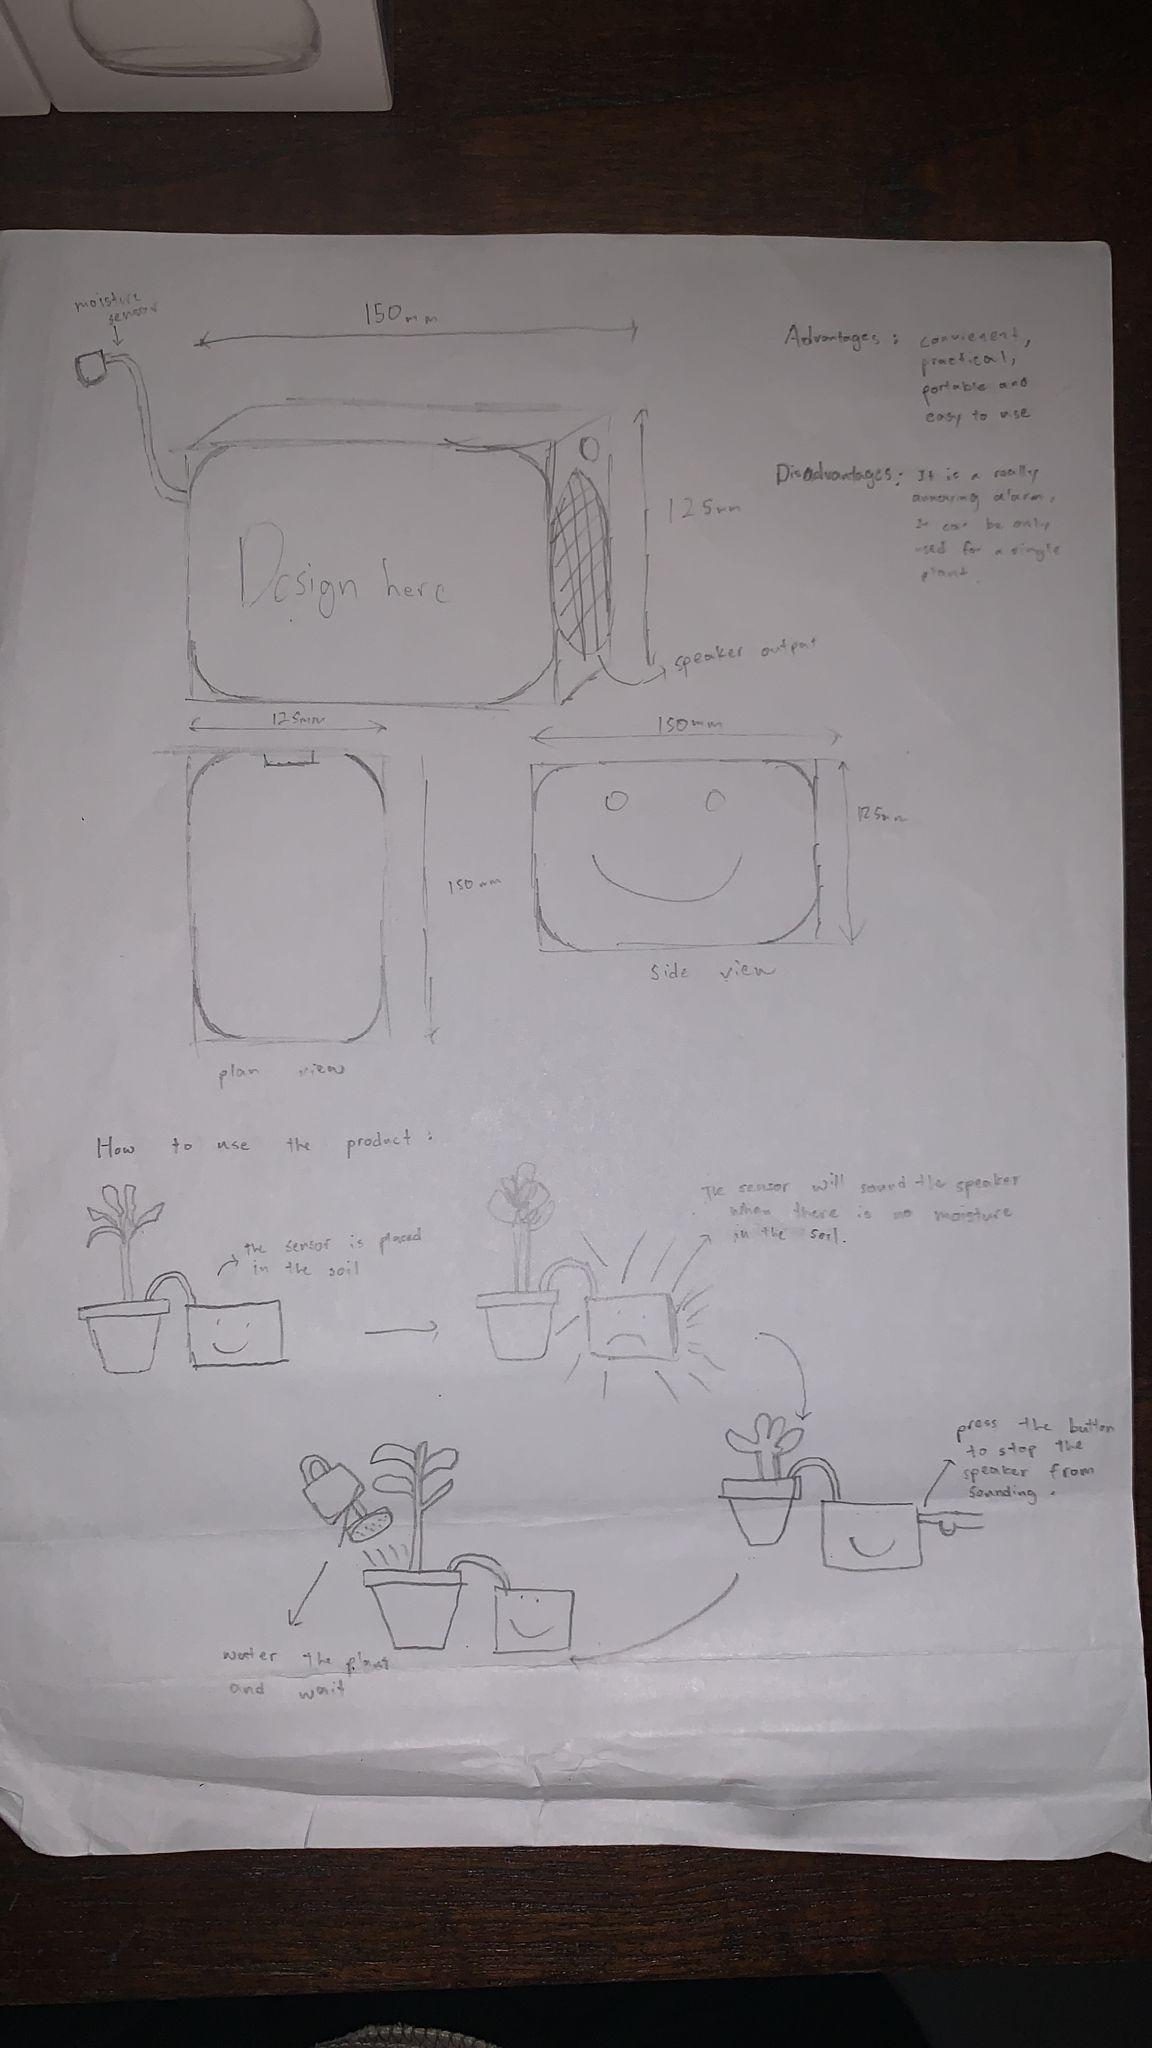 moisture
sensor
150mm
Advantages: convienent,
practical,
portable and
easy to use
Disadvantages: It is a really
annoying alarm,
It can be only
used for a single
plant.
125mm
Design here
speaker output
125mm
150mm
150mm
125mm
side view
plan view
How to use the product:
the sensor is placed
in the soil
The sensor will sound the speaker
when there is no moisture
in the soil.
press the button
to stop the
speaker from
sounding.
water the plant
and wait